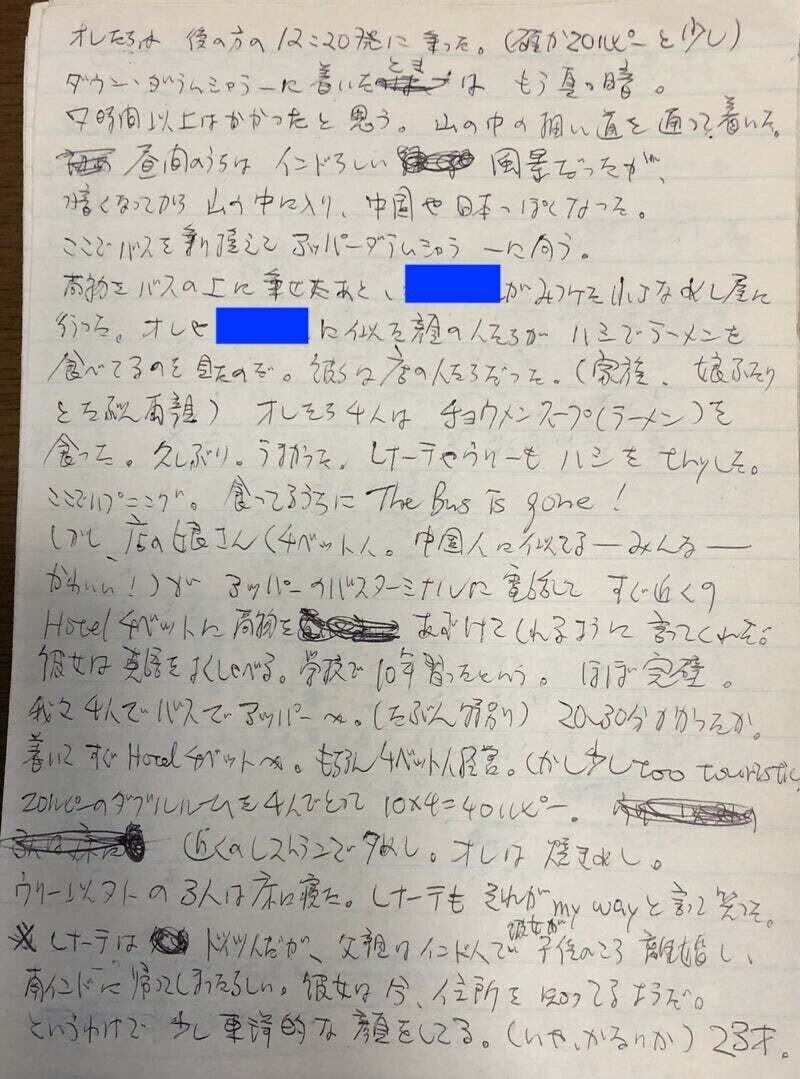 オレたちは 後の方の 12:20発に乗った。(確か20ルピーと少し)
ダウン・ダラムシャラーに着いたときは もう真っ暗。
7時間以上はかかったと思う。山の中の細い道を通って着いた。
昼間のうちは インドらしい 風景だったが、
暗くなってから 山の中に入り、中国や日本っぽくなった。
ここでバスを乗り換えて アッパーダラムシャラーに向う。
荷物をバスの上に乗せたあと、 がみつけた小さなめし屋に
行った。オレと に似た顔の人たちが ハシでラーメンを
食べてるのを見たのだ。彼らは店の人たちだった。(家族、娘ふたり
とたぶん両親) オレたち4人は チョウメンスープ(ラーメン)を
食った。久しぶり。うまかった。レナーテやウリーも ハシを tryした。
ここでハプニング。食ってるうちに The Bus is gone!
しかし、店の娘さん(チベット人。中国人に似てる―みんな―
かわいい!)が アッパーのバスターミナルに電話して すぐ近くの
Hotel チベットに荷物を あずけてくれるように言ってくれた。
彼女は英語をよくしゃべる。学校で10年習ったという。ほぼ完璧。
我々4人でバスでアッパーへ。(たぶん ) 20〜30分かかったか。
着いてすぐ Hotel チベットへ。もちろんチベット人経営。(しかし少し too touristic
20ルピーのダブルルームを4人でとって 10×4=40ルピー。
近くのレストランで夕めし。オレは 焼きめし。
ウリー以外の3人は床に寝た。レナーテも それが my way と言って笑った。
レナーテは ドイツ人だが、父親はインド人で 彼女が子供のころ 離婚し、
南インドに帰ってしまったらしい。彼女は今、住所を知ってるようだ。
というわけで 少し東洋的な顔をしてる。(いや、かなりか) 23才。